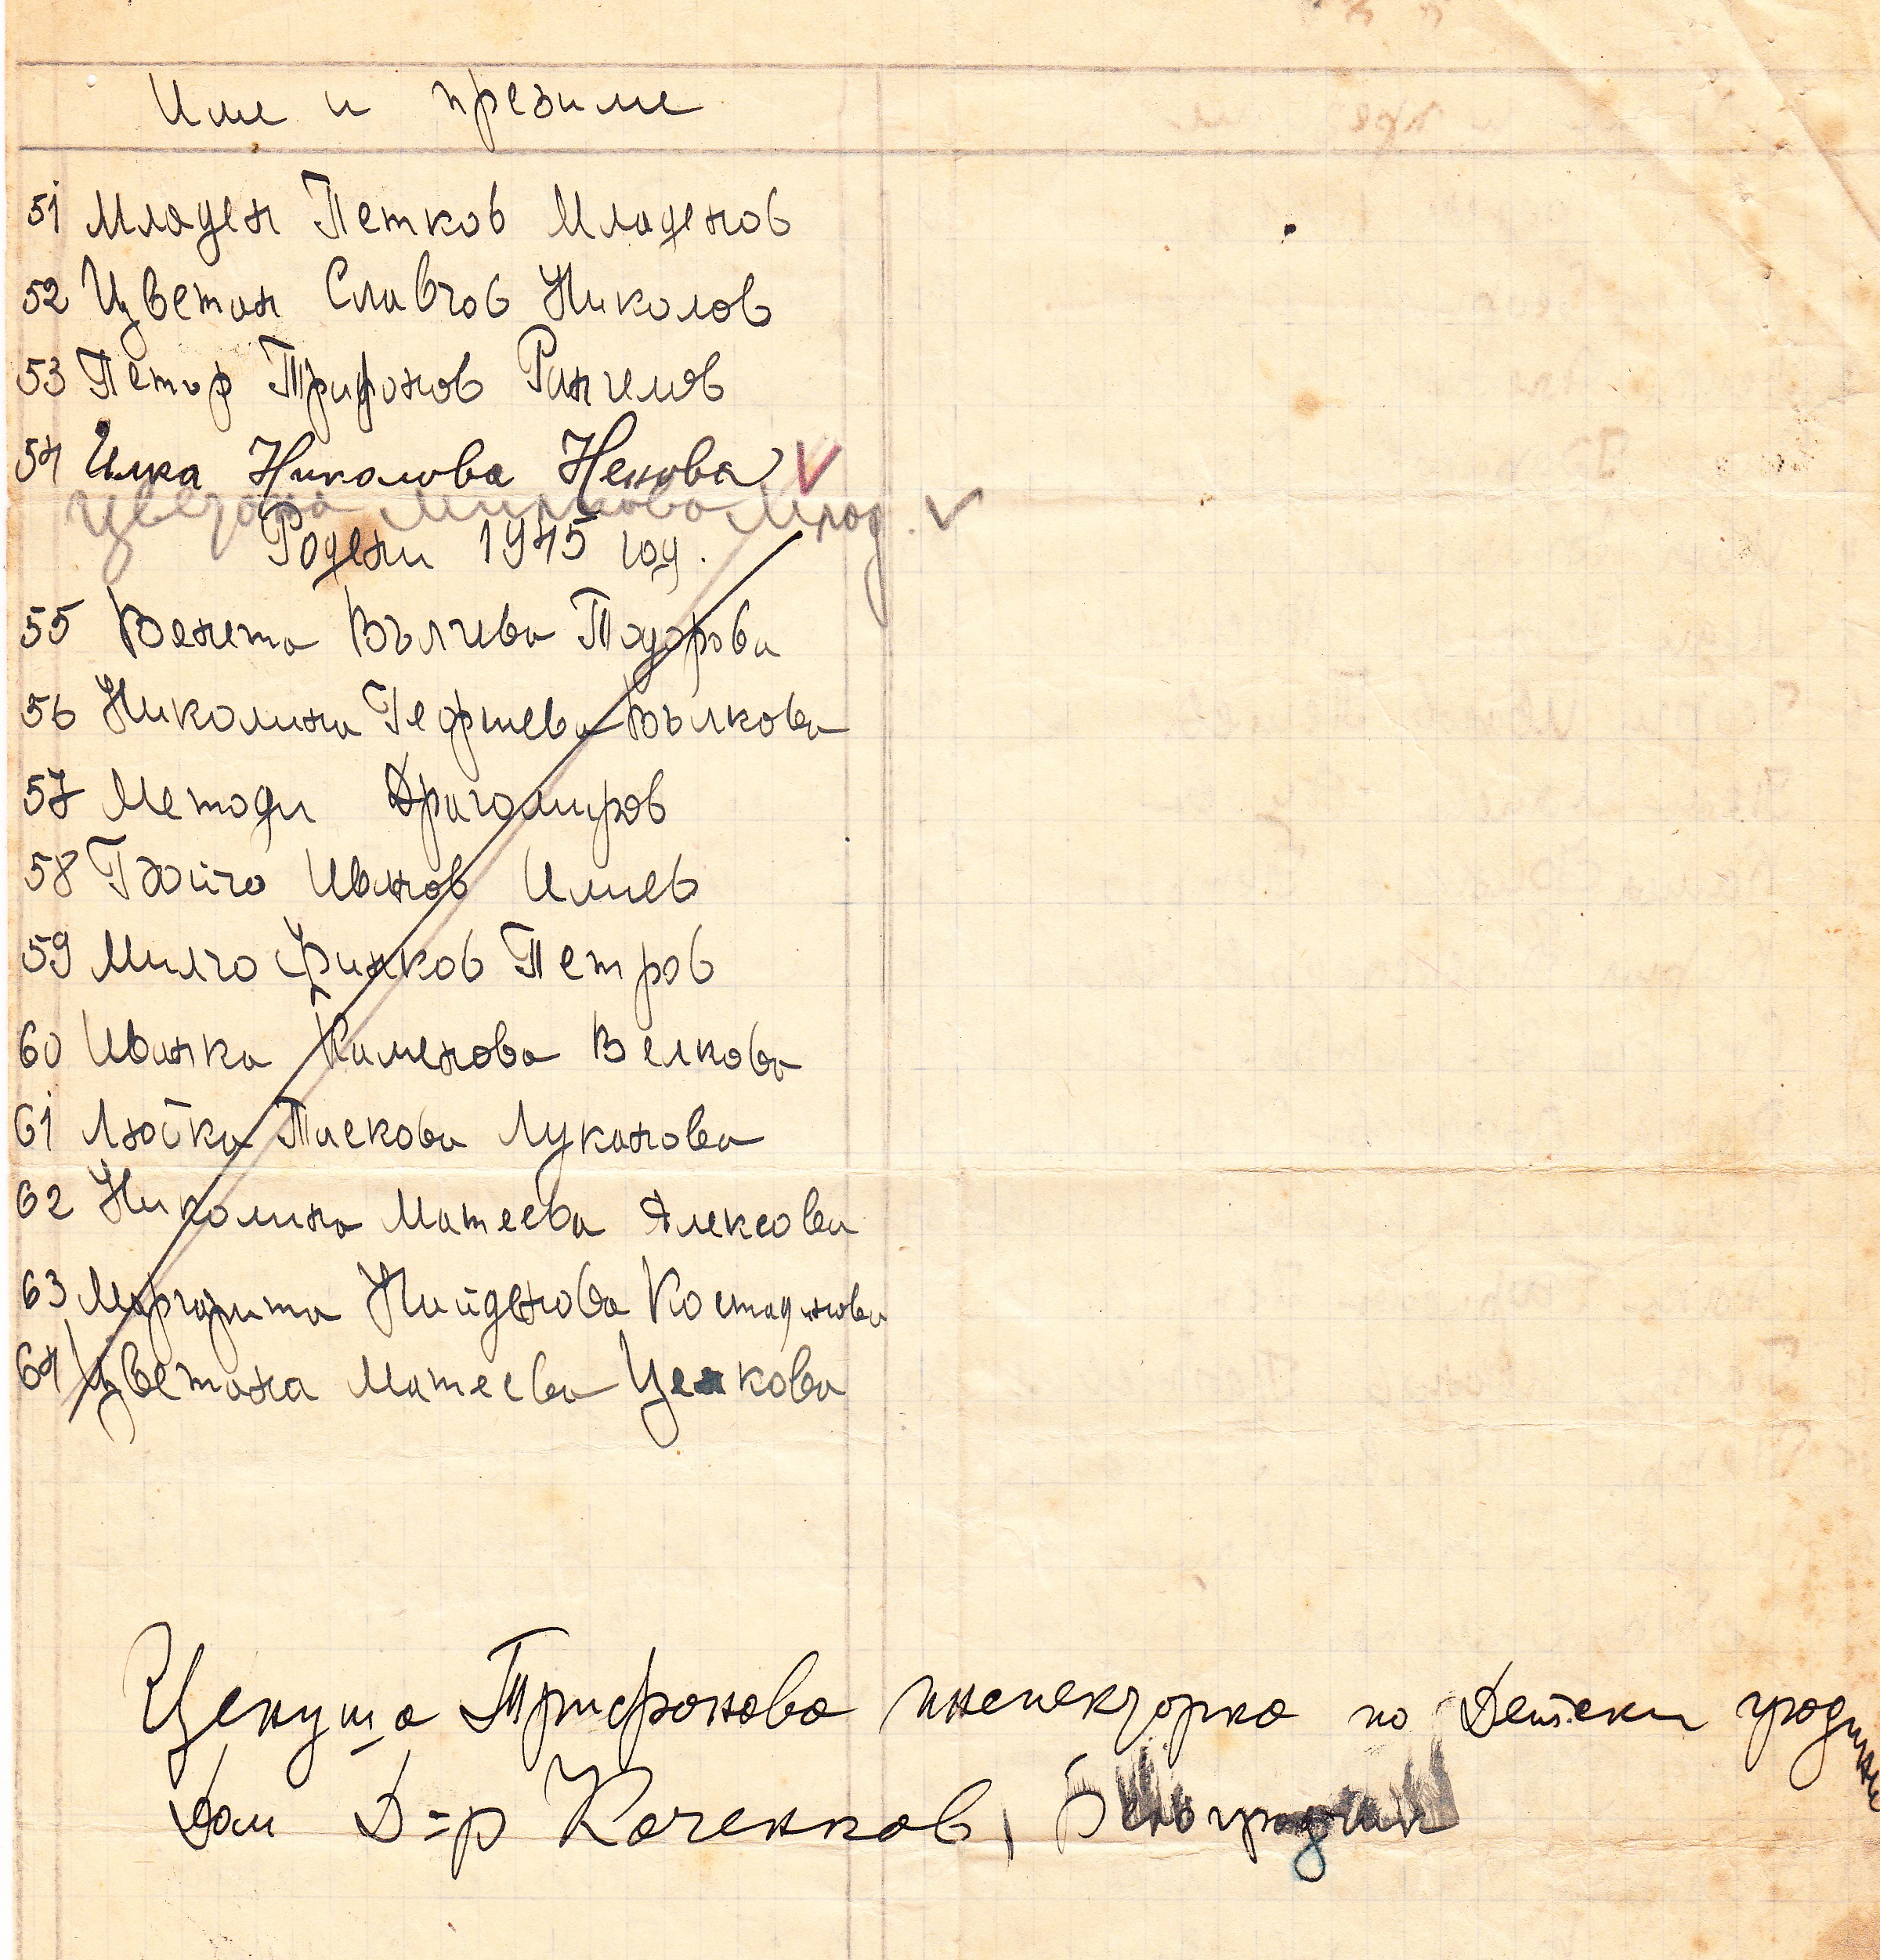 Име и презиме
51 Младен Петков Младенов
52 Цветан Славчов Николов
53 Петър Трифонов Рангелов
54 Илка Николова Ненова
Миркова Млад.
Родени 1945 год.
55 Венета Вълчева Тодорова
56 Николина Георгиева Вълкова
57 Методи Драгомиров
58 Иванов Илиев
59 Милчо Финков Петров
60 Иванка Каменова Велкова
61 Лютка Луканова
62 Николина Матеева Алексова
63 Маргарита Найденова Костадинова
64 Цветана Матеева Ценкова
Ценуша Трифонова инспекторка по Детски градини
Дом Д=р Коченков, Белоградчик